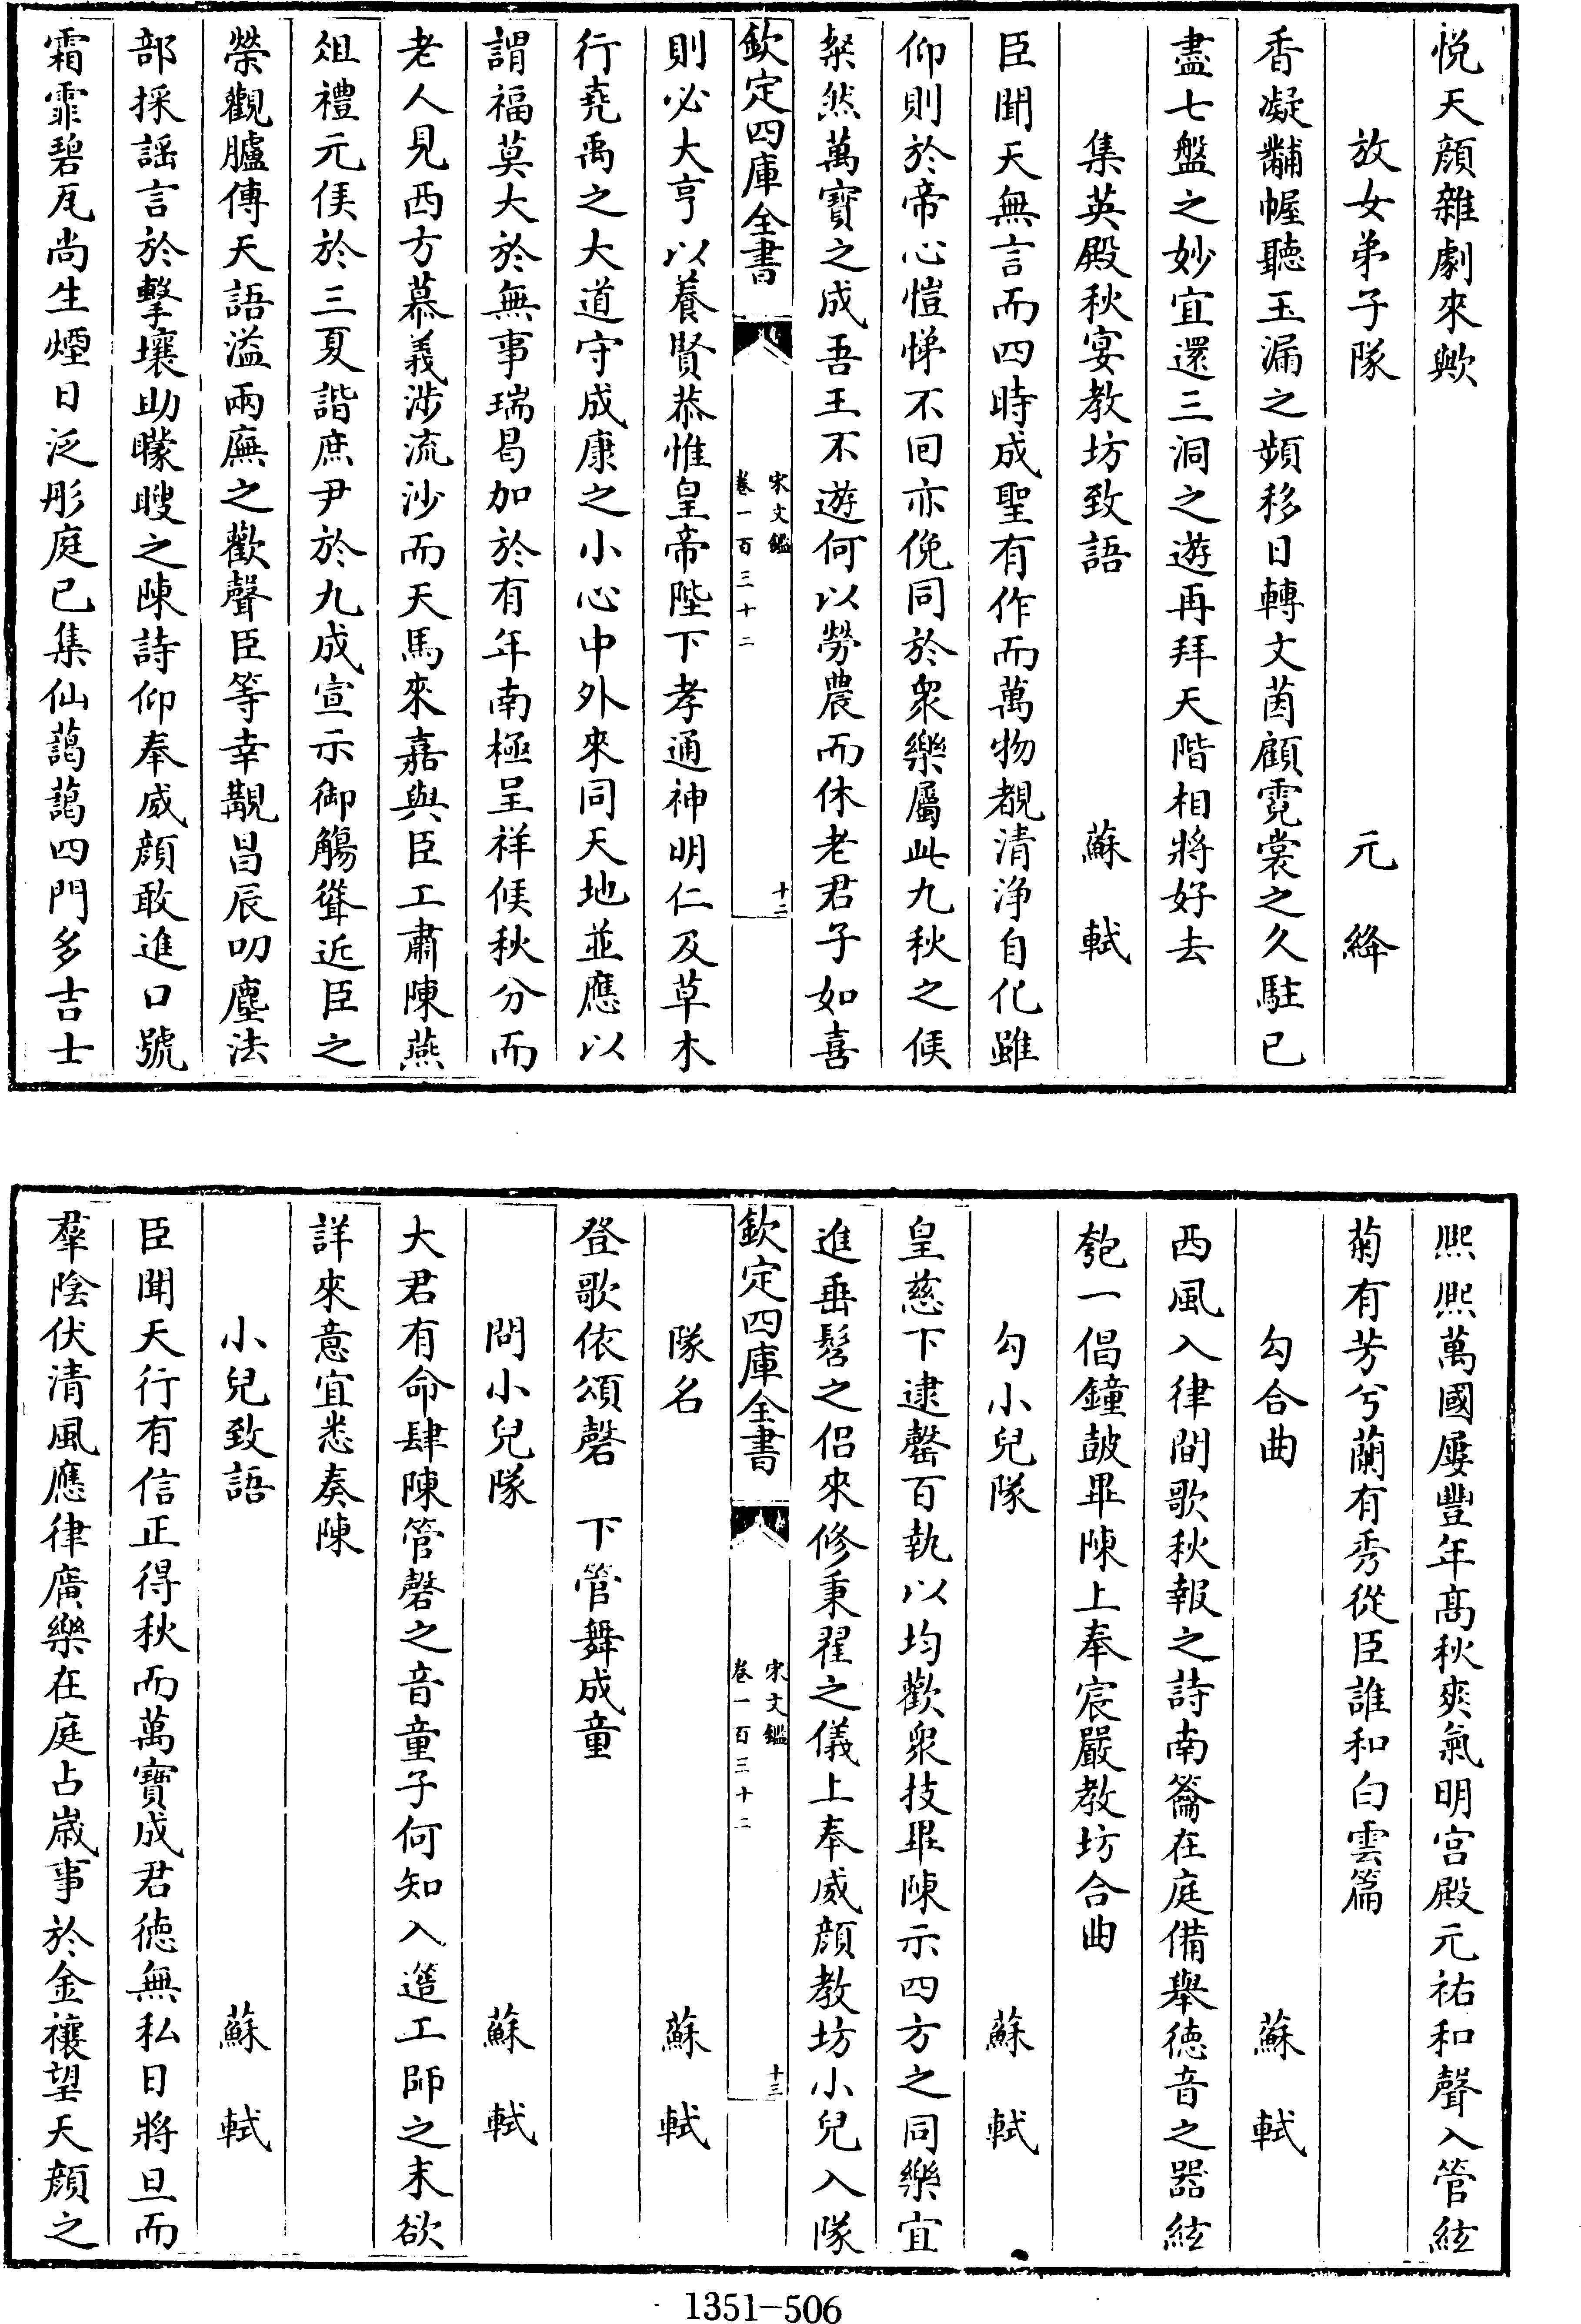 悅天顔雜劇來歟
放女弟子隊　元絳
香凝黼幄聽玉漏之頻移日轉文茵顧霓裳之久駐已
盡七盤之妙宜還三洞之遊再拜天階相將好去
集英殿秋宴教坊致語　蘇軾
臣聞天無言而四時成聖有作而萬物覩清浄自化雖
仰則於帝心愷悌不回亦俛同於衆樂屬此九秋之候
粲然萬寶之成吾王不遊何以勞農而休老君子如喜
欽定四庫全書
宋文鑑
卷一百三十二
十二
則必大亨以養賢恭惟皇帝陛下孝通神明仁及草木
行堯禹之大道守成康之小心中外來同天地並應以
謂福莫大於無事瑞曷加於有年南極呈祥候秋分而
老人見西方慕義涉流沙而天馬來嘉與臣工肅陳燕
俎禮元侯於三夏諧庶尹於九成宣示御觴聳近臣之
榮觀臚傳天語溢兩廡之歡聲臣等幸覯昌辰叨塵法
部採謡言於擊壤助矇瞍之陳詩仰奉威顔敢進口號
霜霏碧瓦尚生煙日泛彤庭已集仙藹藹四門多吉士
熙熙萬國屢豐年髙秋爽氣明宫殿元祐和聲入管絃
菊有芳兮蘭有秀從臣誰和白雲篇
勾合曲　蘇軾
西風入律間歌秋報之詩南籥在庭備舉徳音之器絃
匏一倡鐘鼓畢陳上奉宸嚴教坊合曲
勾小兒隊　蘇軾
皇慈下逮罄百執以均歡衆技畢陳示四方之同樂宜
進垂髫之侣來修秉翟之儀上奉威顔教坊小兒入隊
欽定四庫全書
宋文鑑
卷一百三十二
十三
隊名　蘇軾
登歌依頌磬　下管舞成童
問小兒隊　蘇軾
大君有命肆陳管磬之音童子何知入簉工師之末欲
詳來意宜悉奏陳
小兒致語　蘇軾
臣聞天行有信正得秋而萬寶成君徳無私日將旦而
羣陰伏清風應律廣樂在庭占歳事於金穰望天顔之
1351-506